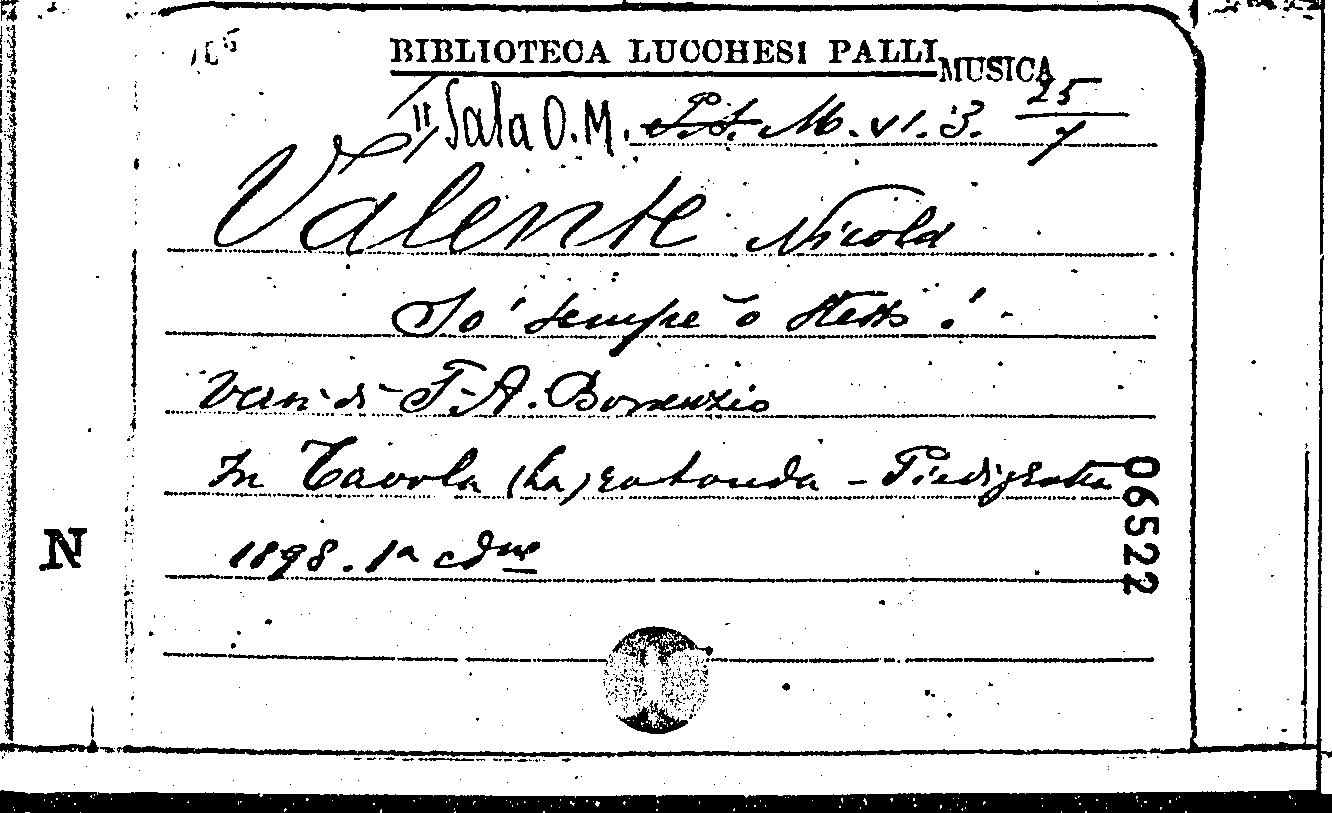 BIBLIOTECA LUCCHESI PALLI
MUSICA
II Sala O.M. P.S. M. VI. 3. 25/7
Valente Nicola
So' sempe 'o stesso!
Versi di T. A. Borrenzio
In Tavola (La) rotonda - Piedigrotta
1898. 1a edne
N
06522